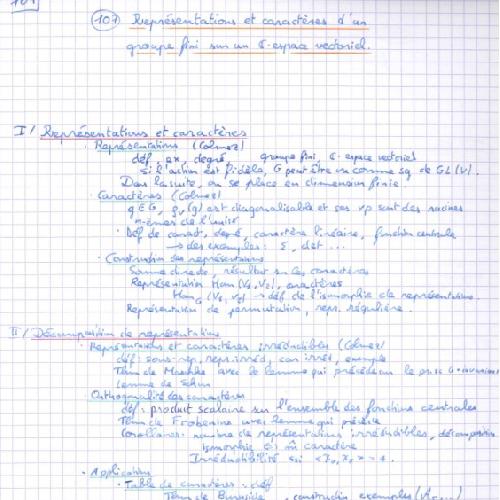 107
107 Représentations et caractères d'un
groupe fini sur un C-espace vectoriel.
I / Représentations et caractères
· Représentations (Colmez)
déf, ex, degré, groupe fini, C-espace vectoriel
si l'action est fidèle, G peut être vu comme sg de GL(V).
Dans la suite, on se place en dimension finie
· Caractères (Colmez)
g∈G, ρv(g) est diagonalisable et ses vp sont des racines
n-èmes de l'unité
· Déf de caract, degré, caractère linéaire, fonction centrale
→ des exemples : Σ, det ...
· Construction des représentations
Somme directe, résultat sur les caractères
Représentation Hom (V1, V2), caractères
HomG (V1, V2) → déf de l'isomorphie de représentations.
Représentation de permutation, repr. régulière.
II / Décomposition de représentations
· Représentations et caractères irréductibles (Colmez)
déf : sous-rep, rep irréd, car irréd, exemple
Thm de Maschke avec le lemme qui précède
Lemme de Schur
· Orthogonalité des caractères
déf : produit scalaire sur l'ensemble des fonctions centrales
Thm de Frobenius avec lemme qui précède
Corollaires : nombre de représentations irréductibles, décomposition
isomorphie ssi m̂ caractère
Irréductibilité ssi = 1.
· Application
· Table de caractères : déf
Thm de Burnside, construction exemples